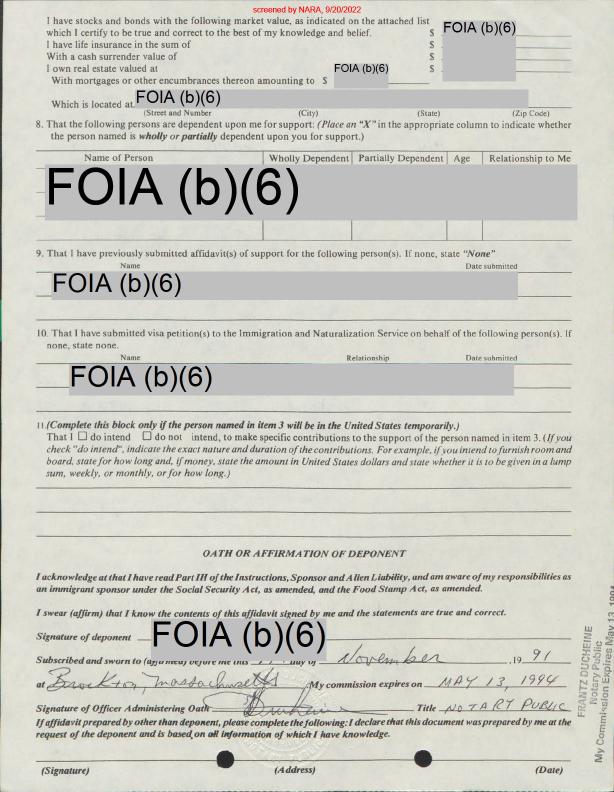 screened by NARA, 9/20/2022
I have stocks and bonds with the following market value, as indicated on the attached list
which I certify to be true and correct to the best of my knowledge and belief. $ FOIA (b)(6)
I have life insurance in the sum of $
With a cash surrender value of $
I own real estate valued at $
With mortgages or other encumbrances thereon amounting to $ FOIA (b)(6)
Which is located at FOIA (b)(6)
(Street and Number (City) (State) (Zip Code)
8. That the following persons are dependent upon me for support: (Place an "X" in the appropriate column to indicate whether
the person named is wholly or partially dependent upon you for support.)
Name of Person Wholly Dependent Partially Dependent Age Relationship to Me
FOIA (b)(6)
9. That I have previously submitted affidavit(s) of support for the following person(s). If none, state "None"
Name Date submitted
FOIA (b)(6)
10. That I have submitted visa petition(s) to the Immigration and Naturalization Service on behalf of the following person(s). If
none, state none.
Name Relationship Date submitted
FOIA (b)(6)
11.(Complete this block only if the person named in item 3 will be in the United States temporarily.)
That I ☐ do intend ☐ do not intend, to make specific contributions to the support of the person named in item 3. (If you
check "do intend", indicate the exact nature and duration of the contributions. For example, if you intend to furnish room and
board, state for how long and, if money, state the amount in United States dollars and state whether it is to be given in a lump
sum, weekly, or monthly, or for how long.)
OATH OR AFFIRMATION OF DEPONENT
I acknowledge at that I have read Part III of the Instructions, Sponsor and Alien Liability, and am aware of my responsibilities as
an immigrant sponsor under the Social Security Act, as amended, and the Food Stamp Act, as amended.
I swear (affirm) that I know the contents of this affidavit signed by me and the statements are true and correct.
Signature of deponent FOIA (b)(6)
Subscribed and sworn to (affirmed) before me this day of November ,19 91
at Brockton, Massachusetts My commission expires on MAY 13, 1994
Signature of Officer Administering Oath Title NOTARY PUBLIC
If affidavit prepared by other than deponent, please complete the following: I declare that this document was prepared by me at the
request of the deponent and is based on all information of which I have knowledge.
(Signature) (Address) (Date)
FRANTZ DUCHEINE
Notary Public
My Commission Expires May 13, 1994